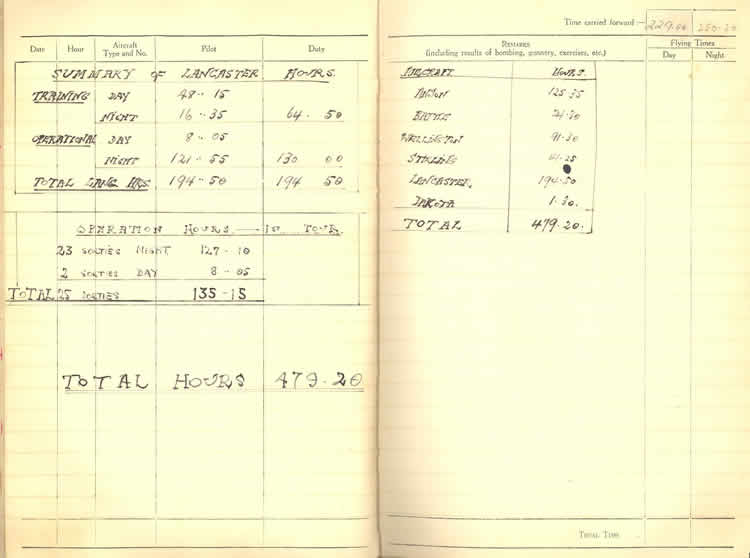 Date Hour Aircraft Type and No. Pilot Duty
SUMMARY of LANCASTER HOURS.
TRAINING DAY 48 - 15
NIGHT 16 - 35 64 . 50
OPERATIONAL DAY 8 - 05
NIGHT 121 - 55 130 00
TOTAL LANC HRS. 194 - 50 194 50
OPERATION HOURS — 1st TOUR.
23 SORTIES NIGHT 127 - 10
2 SORTIES DAY 8 - 05
TOTAL 25 SORTIES 135 - 15
TOTAL HOURS 479.20
Time carried forward :— 229.00 250.20
REMARKS (including results of bombing, gunnery, exercises, etc.) Flying Times
Day Night
AIRCRAFT HOURS.
ANSON 125.35
BATTLE
WELLINGTON 91.30
STIRLING 41.25
LANCASTER. 194.50
DAKOTA 1.30.
TOTAL 479.20.
TOTAL TIME